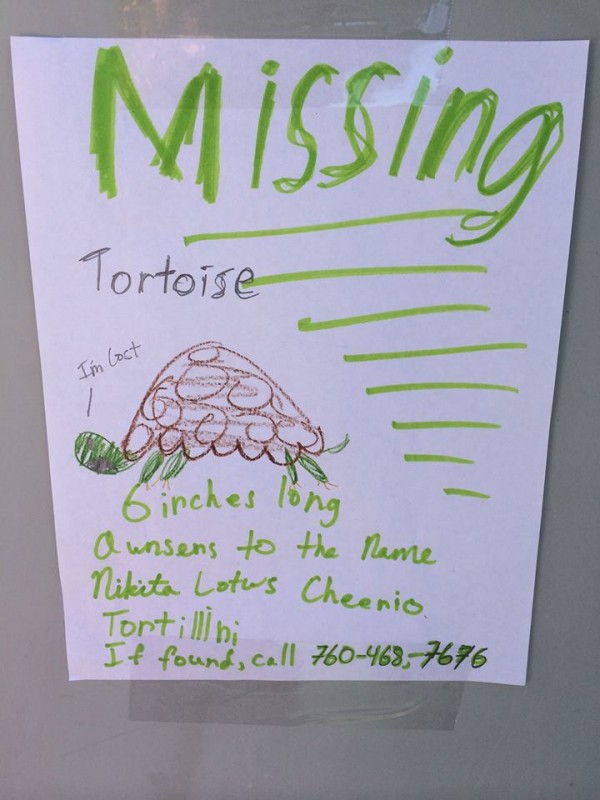 Missing
Tortoise
I'm Lost
6 inches long
Awnsens to the Name
Nikita Lotus Cheenio
Tortillini
If found, call 760-468,-7676